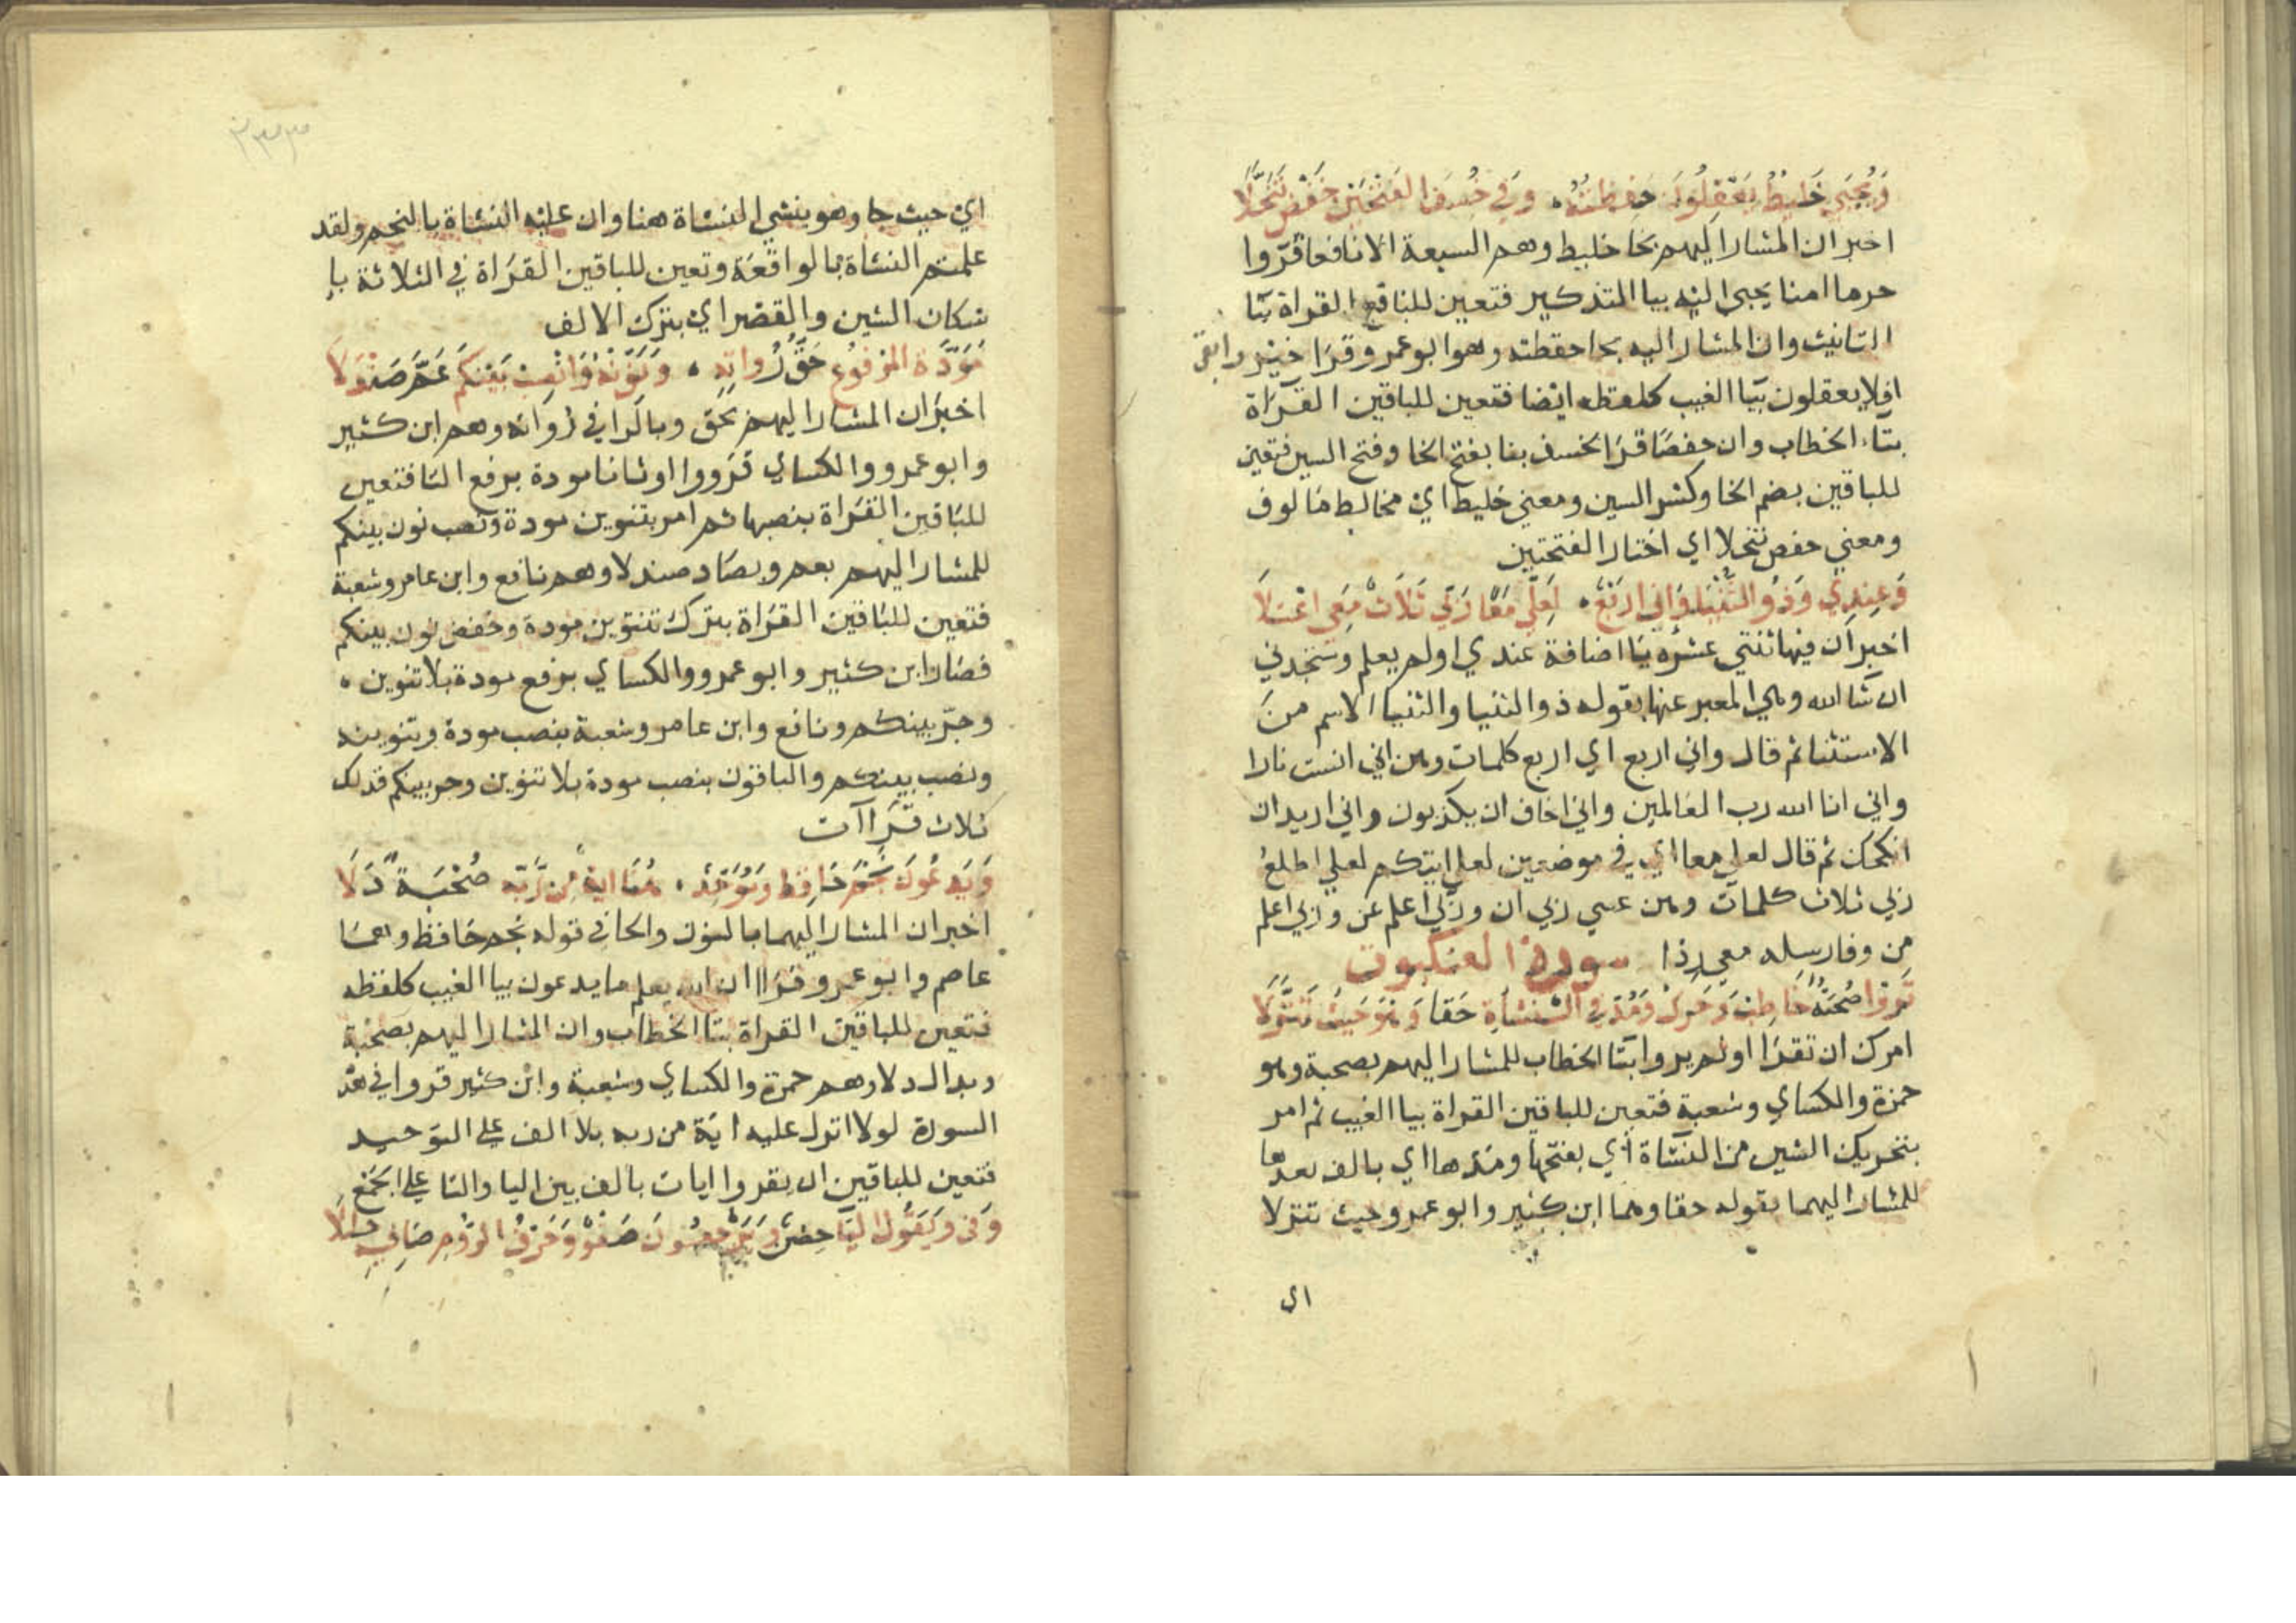 وَيُجبَى خَليطٌ يَعْقِلُونَ حَفِظتُهُ ۰ وَفي خُسِفَ الفَتْحَتَيْنِ حَفْصٌ تَنَخَّلَا
اخبر ان المشار اليهم بخا خليط وهم السبعة الا نافعا قرَوا
حرما امنا يجبي اليه بيا التذكير فتعين للنافع القراة بتا
التانيث وان المشار اليه بحا حفظته وهو ابو عمرو قرَا خير وابقى
افلا يعقلون بيَا الغيب كلفظه ايضا فتعين للباقين القرَاة
بتاء الخطاب وان حفصًا قرَا لخسف بنا بفتح الخا وفتح السين فتعين
للباقين بضم الخا وكسْر السين ومعني خليط ايْ مخالط مَالوف
ومعني حفص تنخلا اي اختار الفتحتين
وَعِنْدِي وَذُو الثُّنْيَا وَإني ارْبَعٌ ۰ لَعَلّي مَعًا رَبّي ثَلَاثٌ مَعِي اعْتَلَا
اخبر ان فيها ثنتي عشرَة يَا اضافة عندي اولم يعلم وستجدني
ان شا الله وهي المعبر عنها بقوله ذو الثنيا والثنيا الاسم منَ
الاستثنا ثم قال واني اربع اي اربع كلمات وهن اني انست نارا
واني انا الله رب العَالمين واني اخاف ان يكذبون واني اريد ان
انكحك ثم قال لعلي معا اي في موضعين لعلي اتيكم لعلي اطلع
ربي ثلاث كلمات وهن عسي ربي ان وربّي اعلم عَن وربي اعلم
مِن وفارسله معي ردا سورة العنكبوت
تَرَوْا صُحْبَةٌ خَاطِبْ وَحَرِّكْ وَمُدَّ في النَّشَاَةِ حَقًا وَهْوَ حَيثُ تَنَزَّلَا
امرك ان تقرَا اولم يروا بتَا الخطاب للمشار اليهم بصحبة وهو
حمزة والكسَاي وشعبة فتعين للباقين القراة بيا الغيب ثم امر
بتحريك الشين من النشَاة أي بفتحها ومَدها اي بالف بعدها
للمشار اليهما بقوله حقا وهما ابن كثير وابو عمرو حيث تنزلا
اي
٢٣٣
ايْ حيث جا وهو ينشي النشاة هنا وان عليه النشاة بالنجم ولقد
علمتم النشاة بالواقعَة وتعين للباقين القرَاة في الثلاثة با
سكان الشين والقصْر اي بترك الالف
مَوَدَّة المَرْفوُع حَقُّ رُوَاتِهِ ۰ وَنَوِّنْهُ وَانْصِبْ بَيْنَكُمْ عَمَّ صَنْدَلَا
اخبرَ ان المشار اليهم بحَق وبالرَا في رُوَاته وهم ابن كثير
وابو عمرو والكساي قَرَووا اوثانا مودة برفع التا فتعين
للبَاقين القرَاة بنصبها ثم امر بتنوين مودة ونصب نون بينكم
للمشار اليهم بعم وبصَاد صندلا وهم نافع وابن عامر وشعبة
فتعين للبَاقين القرَاة بترك تنوين مودة وخفض نون بينكم
فصَار ابن كثير وابو عمرو والكساي برفع مودة بلا تنوين ۰
وجرّ بينكم ونافع وابن عامر وشعبة بنصب مودة وتنوينه
ونصب بينكم والباقون بنصب مودة بلا تنوين وجر بينكم فذلك
ثلاث قرَاآت
وَيَدْعُونَ نَجْمٌ حَافِظٌ وَمُوَحِّدٌ ۰ هُنَا ايةٌ مِن رَّبِّهِ صُحْبَةٌ دَلَا
اخبر ان المشار اليهما بالنون والحا في قوله نجم حَافظ وهمَا
عاصم وابو عمرو قرَاا ان الله يعلم ما يدعون بيا الغيب كلفظه
فتعين للباقين القراة بتا الخطاب وان المشار اليهم بصحْبة
وبدال دلا وهم حمزة والكساي وشعبة وابن كثير قروا في هذه
السورة لولا انزل عليه ايَة من ربه بلا الف علي التوحيد
فتعين للباقين ان يقروا ايات بالف بين اليا والتا علي الجَمْع
وَفي وَيَقُولُ اليَا حِصْنٌ وَيُرْجَعُونَ صَفْوٌ وَحَرْفُ الرُّومِ صَافِيهِ حُلّلَا